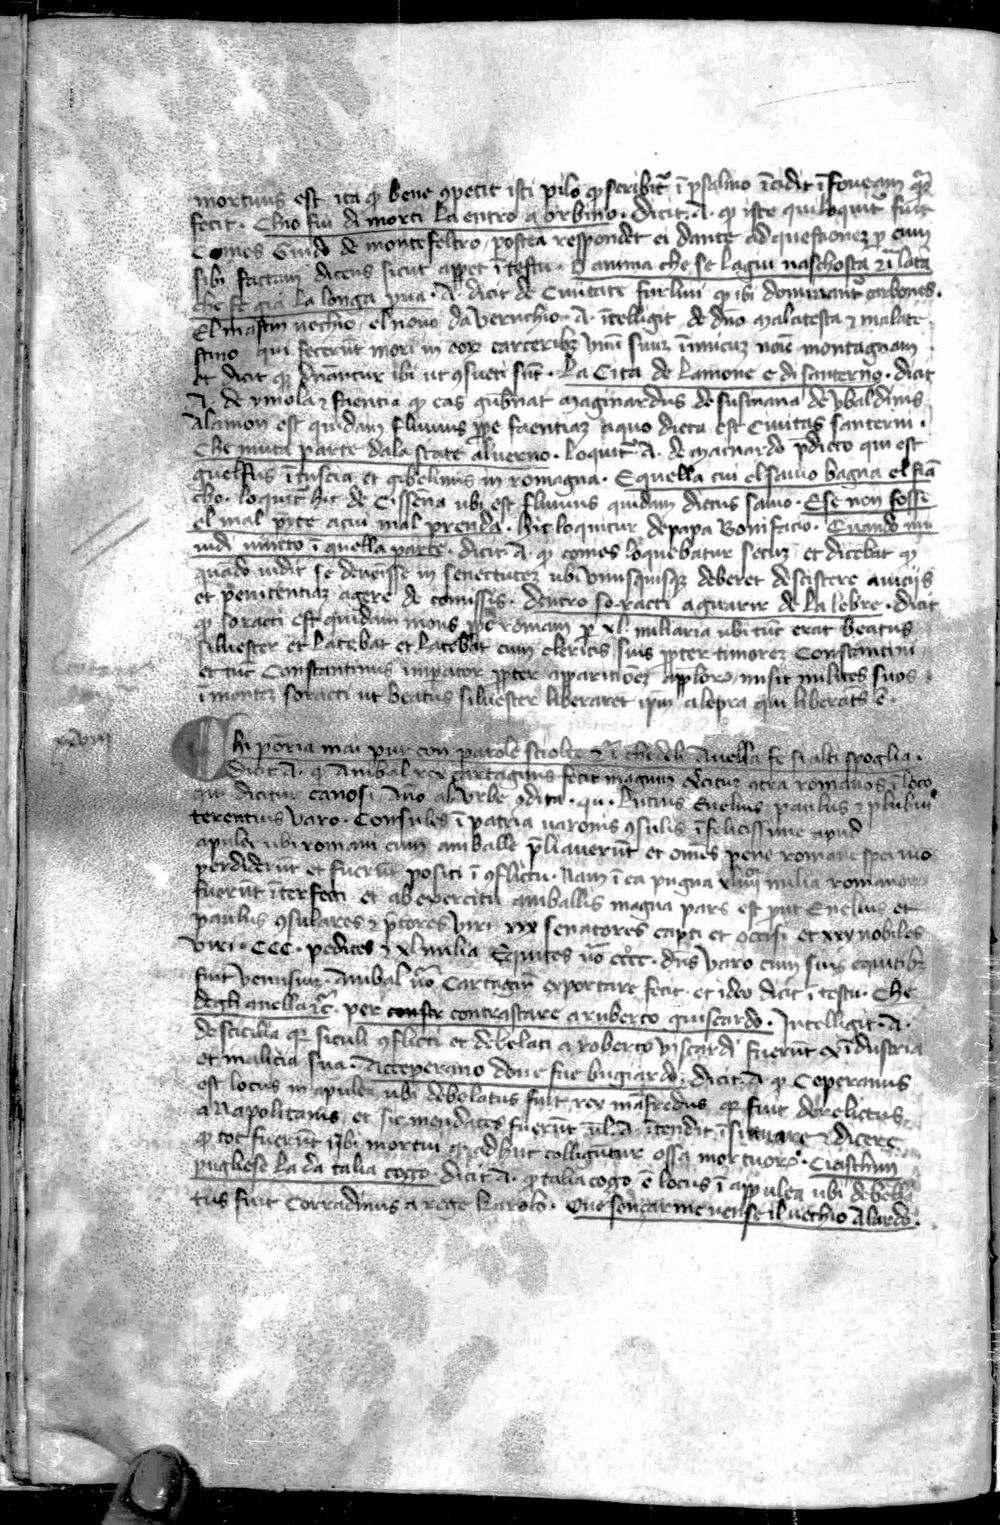 mortuus est ita q̄ bene ꝯpetit isti pilo q̄ scribit᷑ ī psalmo īcidit ī foueam quā
fecit · Chio fui di monti la entro a orbino · dicit · A · q̄ iste qui loquit᷑ fuit
Comes Guido de montefeltro, postea respondet ei dante ad questionez p eum
sibi factam dicens sicut appet ī testu · O anima che se lagiu naschosta ⁊ ī lata
che se gia la longa pua · A · dicit de Ciuitate furliui q̄ ibi dominant᷑
El mastin uechio, el nouo da Veruchio · A · ītelligit de dño malatesta ⁊ malate
stino qui fecerūt mori in eoꝝ carceribꝫ vnū suuz īimicuz noīe montagnam
et dicit q̄ ibi ut ꝯsueti sūt · La Cita de lamone e di santerno · dicit
A · de ymola ⁊ fauentia q̄ eas gubnat maginardus de susinana de vbaldinis
Alamon est quidam fluuius ppe fauentiaz a quo dicta est Ciuitas santerni ·
Che muta parte dala state aluerno · loquit᷑ A · de mainardo pdicto qui est
guelfus ī tuscia et gibelinus in romagna · Equella cui el sauio bagna el fiā
cho · loquit᷑ hic de Cissena ubi est fluuius quidam dictus sauio · Ese non fosse
el mal prete acui mal prenda · hic loquitur de papa Bonifacio · Cuando mi
uidi ī quella parte · dicit A · q̄ comes loquebatur secuz, et dicebat q̄
quādo uidit se deuenisse in senectutez ubi vnusquisqꝫ deberet desistere a uiciis
et penitentiaz agere de comissis · dentro soracti a guarir de la lebre · dicit
q̄ soracti est quidam mons ppe romam p xl miliaria ubi tūc erat beatus
siluester et latebat et latebat cum clericis suis ppter timorez Constantini
et tūc Constantinus impator ppter apparicōez misit milites suos
ī montez soracti ut beatus siluester liberaret ipm a lepra qui liberatus ē ·
xxviii
Chi poria mai pur con parole sciolte ⁊ ī che deli Anella fe si alti spoglia ·
dicit A · q̄ Anibal rex cartaginis fecit magnum exercituz ꝯtra romanos ī loco
qui dicitur canosi, Ano ab vrbe ꝯdita · Lucius Emelius paulus ⁊
terentius varo · Consules ī patria uaronis ꝯsulis īfelicissime apud
apulei ubi romani cum aniballe pliauerūt et omēs pene romane spei uio
perdiderūt et fuerūt positi ī ꝯflictu · Nam ī ea pugna milia romanoꝝ
fuerūt īterfecti et ab exercitu aniballis magna pars est put Emelius et
paulus ꝯsulares ⁊ ptores viri xxx senatores capti et occisi et xxx nobiles
viri · CCC · pedites ⁊ xl milia Equites uō · dūs Varo cum suis equitibꝫ
fuit venusium · Anibal uō Cartaginē exportare fecit · et ideo dicit ī testu · Che
degli anella ⁊c̄ · per contrastare a ruberto guiscardo · Intelligit · A ·
de scicilia q̄ siculi ꝯflicti et debelati a roberto viscardi fuerūt ex īdustria
et malicia sua · A Ceperano doue fue bugiardo · dicit A · q̄ Ceperanus
est locus in apulea ubi debelatus fuit rex māfredus q̄ fuit derelictus
a Napolitanis, et sic mendaces fuerūt · ul · A · ītendit ī dicere
q̄ tot fuerūt ibi mortui q̄ adhuc colliguntur ossa mortuoꝝ · Ciaschun
pugliese la da talia cogo · dicit A · q̄ talia cogo ē locus ī appulea ubi debella
tus fuit Corradinus a rege karolo · Oue senç arme uense il uechio Alardo ·